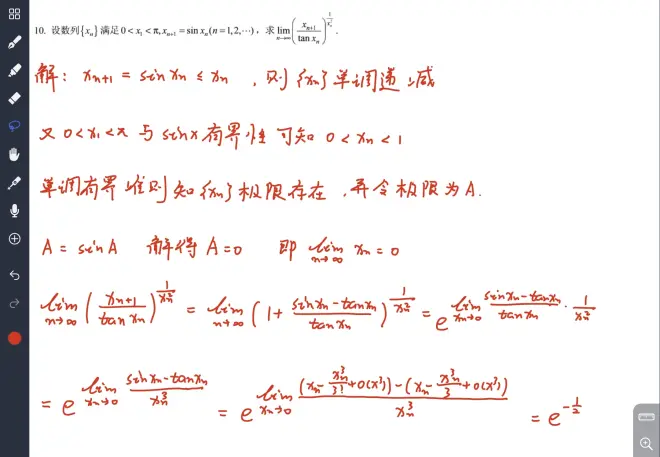 10. 设数列{xₙ}满足0<x₁<π,xₙ₊₁=sin xₙ(n=1,2,⋯),求lim_{n→∞}(xₙ₊₁/tan xₙ)^{1/xₙ²}.
解: xₙ₊₁ = sin xₙ ≤ xₙ ,则{xₙ}单调递减
又 0<x₁<π 与 sinx有界性 可知 0<xₙ<1
单调有界准则知{xₙ}极限存在,并令极限为A.
A = sinA 解得 A=0 即 lim_{n→∞} xₙ = 0
lim_{n→∞}(xₙ₊₁/tan xₙ)^{1/xₙ²} = lim_{n→∞}(1+(sin xₙ-tan xₙ)/tan xₙ)^{1/xₙ²} = e^{lim_{xₙ→0} (sin xₙ-tan xₙ)/tan xₙ · 1/xₙ²}
= e^{lim_{xₙ→0} (sin xₙ-tan xₙ)/xₙ³} = e^{lim_{xₙ→0} ((xₙ-xₙ³/3!+o(x³))-(xₙ-xₙ³/3+o(x³)))/xₙ³} = e^{-1/2}